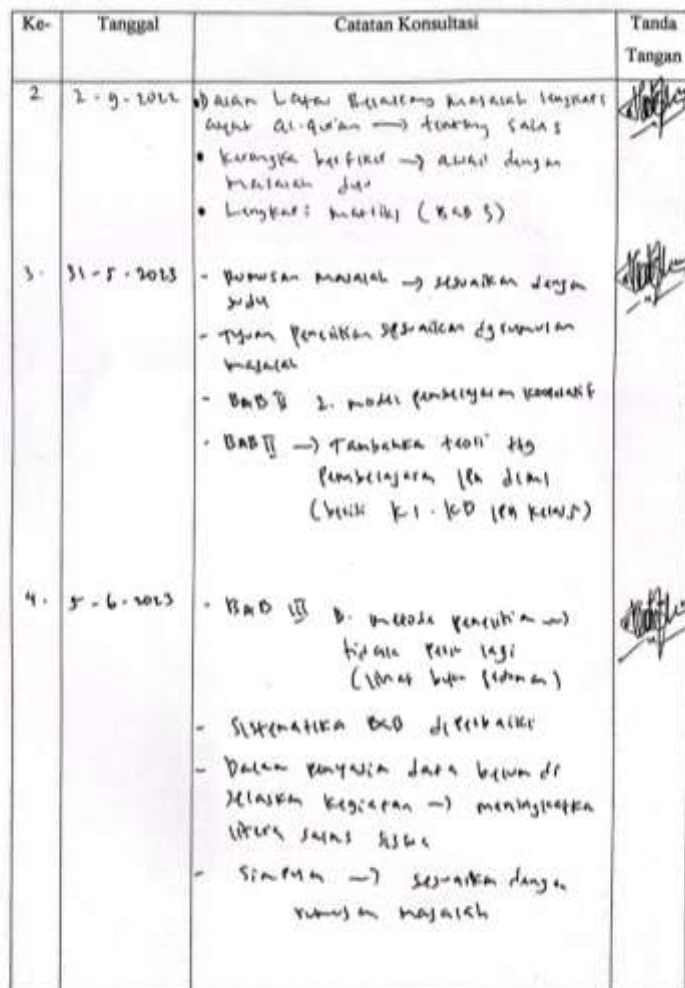 Ke- Tanggal Catatan Konsultasi Tanda Tangan
2 2-9-2022 • Dalam Latar Belakang masalah lengkapi
ayat al-qur'an → tentang sains
• Kerangka berfikir → awali dengan
masalah dulu
• Lengkapi matriks (BAB 3)
3. 31-5-2023 - Rumusan masalah → sesuaikan dengan
judul
- Tujuan penelitian sesuaikan dg rumusan
masalah
- BAB II 2. model pembelajaran kooperatif
- BAB II → Tambahka teori ttg
Pembelajaran IPA di MI
KI - KD IPA kelas 5)
4. 5-6-2023 - BAB III B. metode penelitian →
tidak perlu lagi
(lihat buku pedoman)
- Sistematika BAB diperbaiki
- Dalam penyajian data belum di
jelaskan kegiatan → meningkatka
litera sains siswa
- Simpulan → sesuaikan dengan
rumusan masalah